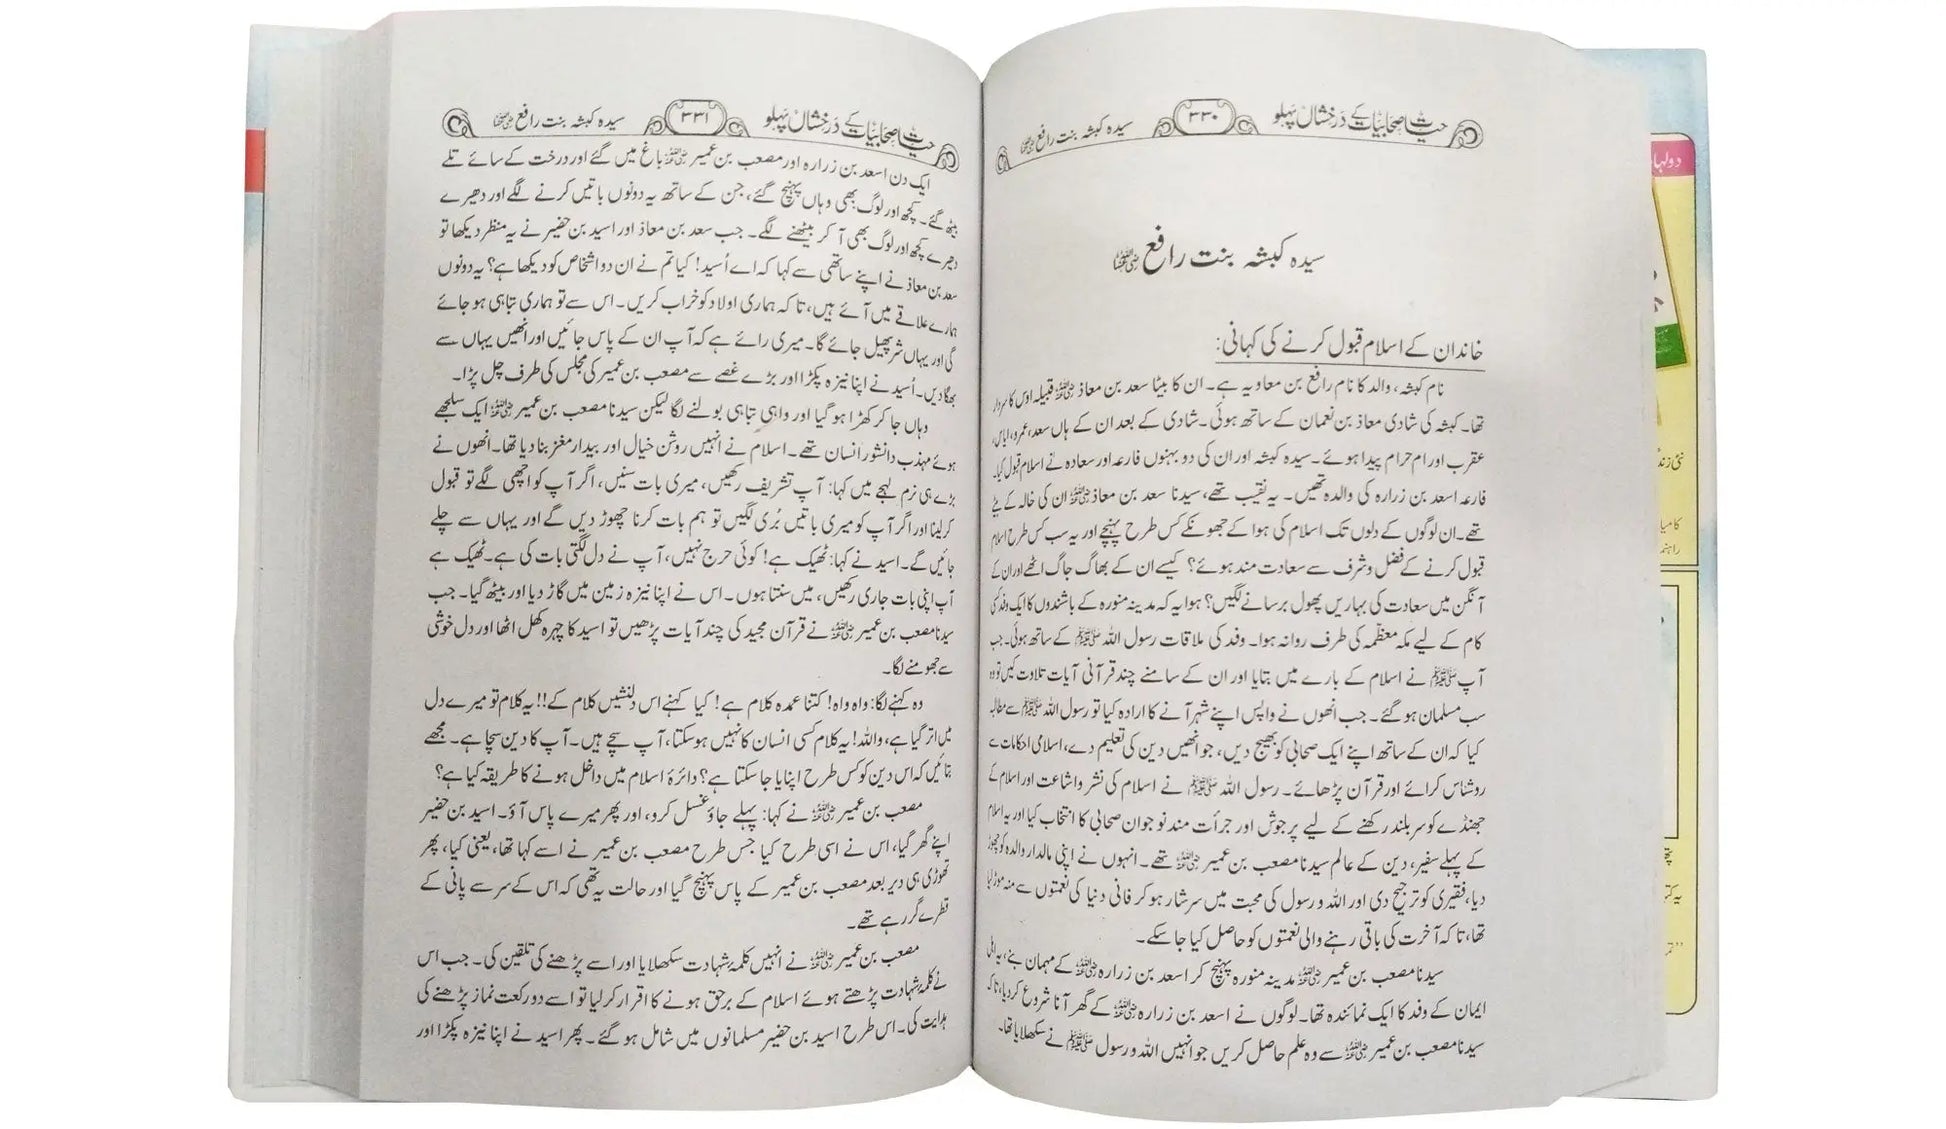 حیات صحابیات کے درخشاں پہلو ۳۳۰ سیدہ کبشہ بنت رافع رضی اللہ عنہا
سیدہ کبشہ بنت رافع رضی اللہ عنہا
خاندان کے اسلام قبول کرنے کی کہانی:
نام کبشہ، والد کا نام رافع بن معاویہ ہے۔ ان کا بیٹا سعد بن معاذ رضی اللہ عنہ قبیلہ اوس کا سردار
تھا۔ کبشہ کی شادی معاذ بن نعمان کے ساتھ ہوئی۔ شادی کے بعد ان کے ہاں سعد، عمرو، ایاس،
عقرب اور ام حرام پیدا ہوئے۔ سیدہ کبشہ اور ان کی دو بہنوں فارعہ اور سعادہ نے اسلام قبول کیا۔
فارعہ اسعد بن زرارہ کی والدہ تھیں۔ یہ نقیب تھے، سیدنا سعد بن معاذ رضی اللہ عنہ ان کی خالہ کے بیٹے
تھے۔ ان لوگوں کے دلوں تک اسلام کی ہوا کے جھونکے کس طرح پہنچے اور یہ سب کس طرح اسلام
قبول کرنے کے فضل و شرف سے سعادت مند ہوئے؟ کیسے ان کے بھاگ جاگ اٹھے اور ان کے
آنگن میں سعادت کی بہاریں پھول برسانے لگیں؟ ہوا یہ کہ مدینہ منورہ کے باشندوں کا ایک وفد کسی
کام کے لیے مکہ معظّمہ کی طرف روانہ ہوا۔ وفد کی ملاقات رسول اللہ ﷺ کے ساتھ ہوئی۔ جب
آپ ﷺ نے اسلام کے بارے میں بتایا اور ان کے سامنے چند قرآنی آیات تلاوت کیں تو وہ
سب مسلمان ہو گئے۔ جب انھوں نے واپس اپنے شہر آنے کا ارادہ کیا تو رسول اللہ ﷺ سے مطالبہ
کیا کہ ان کے ساتھ اپنے ایک صحابی کو بھیج دیں، جو انھیں دین کی تعلیم دے، اسلامی احکامات سے
روشناس کرائے اور قرآن پڑھائے۔ رسول اللہ ﷺ نے اسلام کی نشر و اشاعت اور اسلام کے
جھنڈے کو سربلند رکھنے کے لیے پرجوش اور جرأت مند نوجوان صحابی کا انتخاب کیا اور یہ اسلام
کے پہلے سفیر، دین کے عالم سیدنا مصعب بن عمیر رضی اللہ عنہ تھے۔ انہوں نے اپنی مالدار والدہ کو چھوڑ
دیا، فقیری کو ترجیح دی اور اللہ و رسول کی محبت میں سرشار ہو کر فانی دنیا کی نعمتوں سے منہ موڑ لیا
تھا، تا کہ آخرت کی باقی رہنے والی نعمتوں کو حاصل کیا جا سکے۔
سیدنا مصعب بن عمیر رضی اللہ عنہ مدینہ منورہ پہنچ کر اسعد بن زرارہ رضی اللہ عنہ کے مہمان بنے، یہ اہل
ایمان کے وفد کا ایک نمائندہ تھا۔ لوگوں نے اسعد بن زرارہ رضی اللہ عنہ کے گھر آنا شروع کر دیا، تا کہ
سیدنا مصعب بن عمیر رضی اللہ عنہ سے وہ علم حاصل کریں جو انہیں اللہ و رسول ﷺ نے سکھلایا تھا۔
حیات صحابیات کے درخشاں پہلو ۳۳۱ سیدہ کبشہ بنت رافع رضی اللہ عنہا
ایک دن اسعد بن زرارہ اور مصعب بن عمیر رضی اللہ عنہ باغ میں گئے اور درخت کے سائے تلے
بیٹھ گئے۔ کچھ اور لوگ بھی وہاں پہنچ گئے، جن کے ساتھ یہ دونوں باتیں کرنے لگے اور دھیرے
دھیرے کچھ اور لوگ بھی آ کر بیٹھنے لگے۔ جب سعد بن معاذ اور اسید بن حضیر نے یہ منظر دیکھا تو
سعد بن معاذ نے اپنے ساتھی سے کہا کہ اے اُسید! کیا تم نے ان دو اشخاص کو دیکھا ہے؟ یہ دونوں
ہمارے علاقے میں آئے ہیں، تا کہ ہماری اولاد کو خراب کریں۔ اس سے تو ہماری تباہی ہو جائے
گی اور یہاں شر پھیل جائے گا۔ میری رائے ہے کہ آپ ان کے پاس جائیں اور انھیں یہاں سے
بھگا دیں۔ اُسید نے اپنا نیزہ پکڑا اور بڑے غصے سے مصعب بن عمیر کی مجلس کی طرف چل پڑا۔
وہاں جا کر کھڑا ہو گیا اور واہی تباہی بولنے لگا لیکن سیدنا مصعب بن عمیر رضی اللہ عنہ ایک سلجھے
ہوئے مہذب دانشور انسان تھے۔ اسلام نے انہیں روشن خیال اور بیدار مغز بنا دیا تھا۔ انھوں نے
بڑے ہی نرم لہجے میں کہا: آپ تشریف رکھیں، میری بات سنیں، اگر آپ کو اچھی لگے تو قبول
کر لینا اور اگر آپ کو میری باتیں بُری لگیں تو ہم بات کرنا چھوڑ دیں گے اور یہاں سے چلے
جائیں گے۔ اسید نے کہا: ٹھیک ہے! کوئی حرج نہیں، آپ نے دل لگتی بات کی ہے۔ ٹھیک ہے
آپ اپنی بات جاری رکھیں، میں سنتا ہوں۔ اس نے اپنا نیزہ زمین میں گاڑ دیا اور بیٹھ گیا۔ جب
سیدنا مصعب بن عمیر رضی اللہ عنہ نے قرآن مجید کی چند آیات پڑھیں تو اسید کا چہرہ کھل اٹھا اور دل خوشی
سے جھومنے لگا۔
وہ کہنے لگا: واہ واہ! کتنا عمدہ کلام ہے! کیا کہنے اس دلنشیں کلام کے!! یہ کلام تو میرے دل
میں اتر گیا ہے، واللہ! یہ کلام کسی انسان کا نہیں ہو سکتا، آپ سچے ہیں۔ آپ کا دین سچا ہے۔ مجھے
بتائیں کہ اس دین کو کس طرح اپنایا جا سکتا ہے؟ دائرۂ اسلام میں داخل ہونے کا طریقہ کیا ہے؟
مصعب بن عمیر رضی اللہ عنہ نے کہا: پہلے جاؤ غسل کرو، اور پھر میرے پاس آؤ۔ اسید بن حضیر
اپنے گھر گیا، اس نے اسی طرح کیا جس طرح مصعب بن عمیر نے اسے کہا تھا، یعنی گیا، پھر
تھوڑی ہی دیر بعد مصعب بن عمیر کے پاس پہنچ گیا اور حالت یہ تھی کہ اس کے سر سے پانی کے
قطرے گر رہے تھے۔
مصعب بن عمیر رضی اللہ عنہ نے انہیں کلمۂ شہادت سکھلایا اور اسے پڑھنے کی تلقین کی۔ جب اس
نے کلمۂ شہادت پڑھتے ہوئے اسلام کے برحق ہونے کا اقرار کر لیا تو اسے دو رکعت نماز پڑھنے کی
ہدایت کی۔ اس طرح اسید بن حضیر مسلمانوں میں شامل ہو گئے۔ پھر اسید نے اپنا نیزہ پکڑا اور